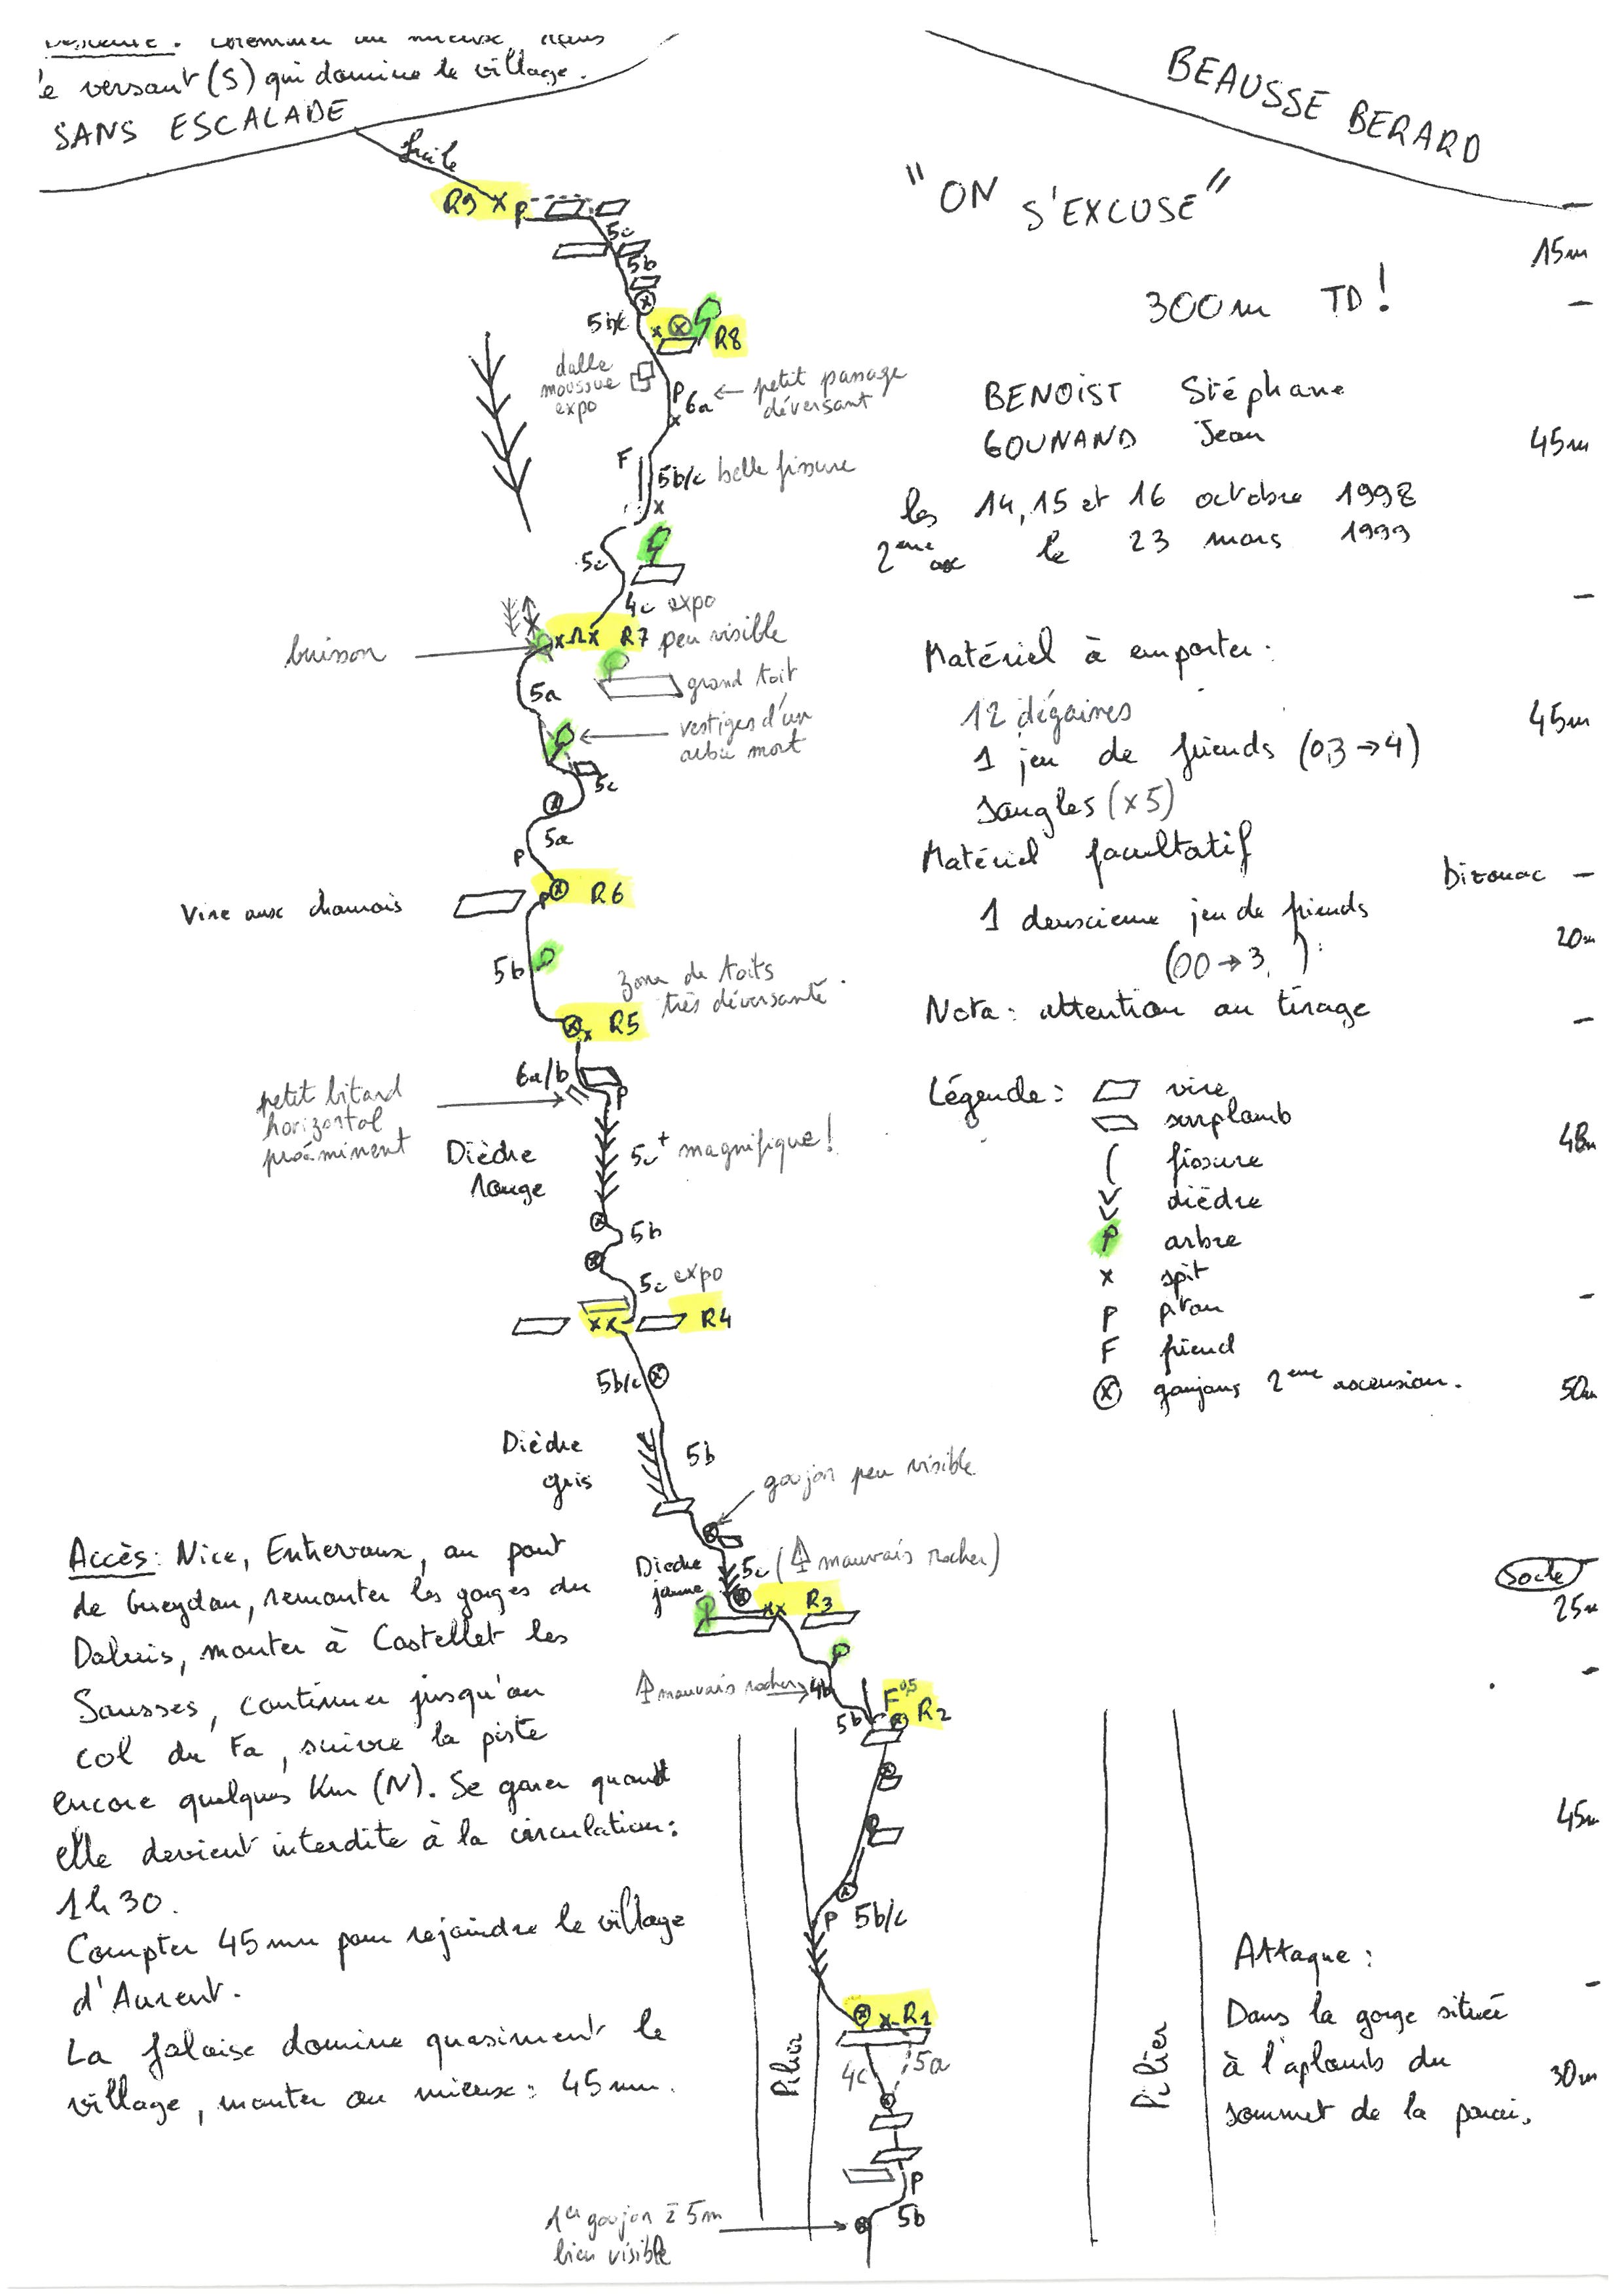 versant (S) qui domine le village.
SANS ESCALADE
BEAUSSE BERARD
"ON S'EXCUSE"
300m TD!
BENOIST Stéphane
GOUNAND Jean
les 14, 15 et 16 octobre 1998
2eme asc le 23 mars 1999
Matériel à emporter:
12 dégaines
1 jeu de friends (0,3→4)
sangles (x5)
Matériel facultatif
1 deuxieme jeu de friends
(00→3, ):
Nota: attention au tirage
Légende: vire
surplomb
fissure
dièdre
P arbre
x spit
P piton
F friend
goujons 2eme ascension.
facile
R9 x P
5c
5b
5b/c
x R8
dalle
moussue
expo
P
6a ← petit passage
déversant
x
F
5b/c belle fissure
x
5c
4c expo
x x R7 peu visible
buisson
grand toit
5a
vestiges d'un
arbre mort
5c
5a
P
R6
P
Vire aux chamois
5b
zone de toits
très déversante.
x R5
6a/b
P
petit bitard
horizontal
proéminent
Dièdre
rouge
5c+ magnifique!
5b
5c expo
xx R4
5b/c
Dièdre
gris
5b
goujon peu visible
Dièdre
jaune
5c (mauvais rocher)
xx R3
mauvais rocher → 4b
F0,5
5b R2
P 5b/c
x R1
4c 5a
P
5b
1er goujon à 5m
bien visible
Pilier
Pilier
15m
45m
45m
bivouac
20m
48m
50m
socle
25m
45m
30m
Accès: Nice, Entrevaux, au pont
de Gueydan, remonter les gorges du
Daluis, monter à Castellet les
Sausses, continuer jusqu'au
col du Fa, suivre la piste
encore quelques Km (N). Se garer quand
elle devient interdite à la circulation:
1h30.
Compter 45mn pour rejoindre le village
d'Aurent.
La falaise domine quasiment le
village, monter au mieux: 45mn.
Attaque:
Dans la gorge située
à l'aplomb du
sommet de la paroi.